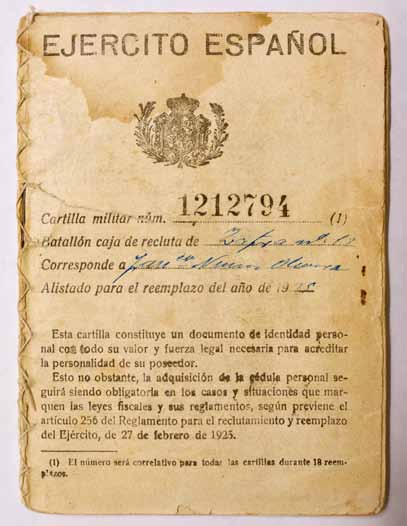 EJERCITO ESPAÑOL
Cartilla militar núm. 1212794 (1)
Batallón caja de recluta de Zafra nº.
Corresponde a
Alistado para el reemplazo del año de 19
Esta cartilla constituye un documento de identidad perso-
nal con todo su valor y fuerza legal necesaria para acreditar
la personalidad de su poseedor.
Esto no obstante, la adquisición de la cédula personal se-
guirá siendo obligatoria en los casos y situaciones que mar-
quen las leyes fiscales y sus reglamentos, según previene el
artículo 256 del Reglamento para el reclutamiento y reemplazo
del Ejército, de 27 de febrero de 1925.
(1) El número será correlativo para todas las cartillas durante 18 reem-
plazos.